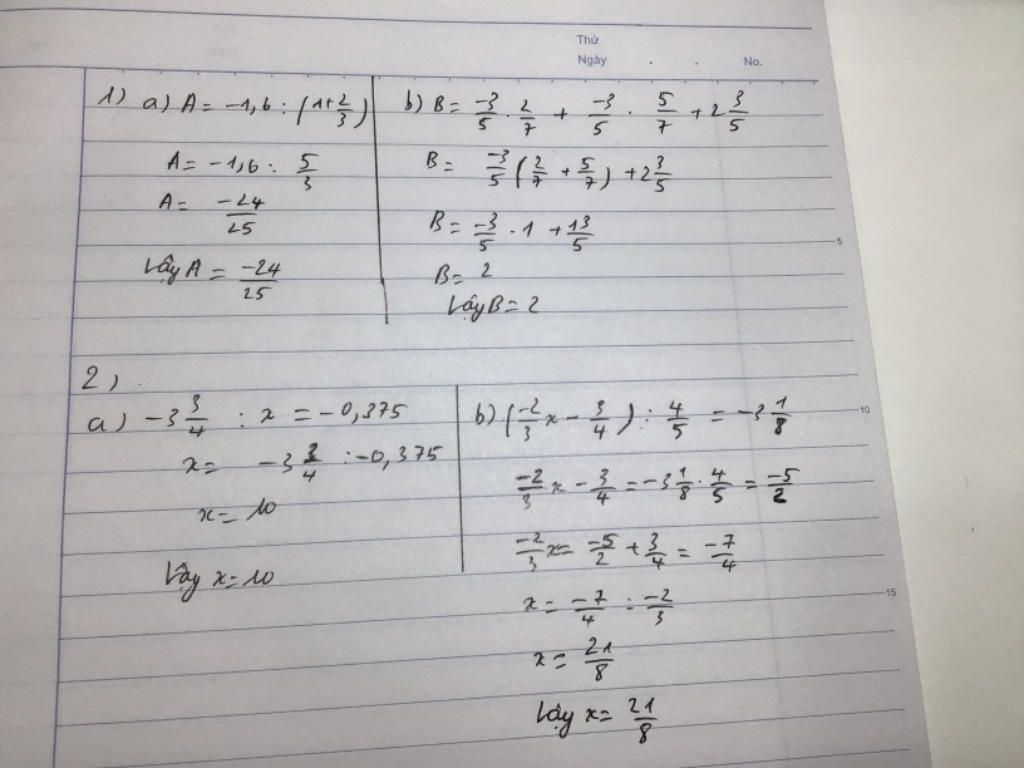 Thứ
Ngày . . No.
1) a) A = -1,6 : (1+2/3)
A = -1,6 : 5/3
A = -24/25
Vậy A = -24/25
b) B = -3/5 . 2/7 + -3/5 . 5/7 + 2 3/5
B = -3/5 (2/7 + 5/7) + 2 3/5
B = -3/5 . 1 + 13/5
B = 2
Vậy B = 2
5
2) .
a) -3 3/4 : x = -0,375
x = -3 3/4 : -0,375
x = 10
Vậy x = 10
b) (-2/3 x - 3/4) : 4/5 = -3 1/8
-2/3 x - 3/4 = -3 1/8 . 4/5 = -5/2
-2/3 x = -5/2 + 3/4 = -7/4
x = -7/4 : -2/3
x = 21/8
Vậy x = 21/8
10
15